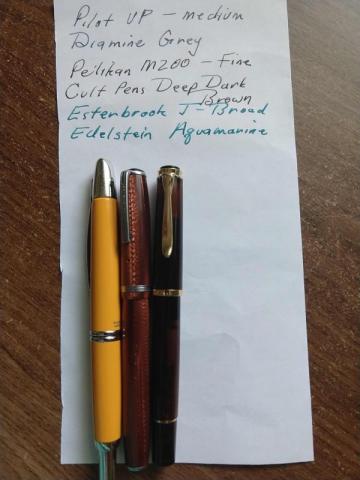 Pilot VP - medium
Diamine Grey
Pelikan M200 - Fine
Cult Pens Deep Dark
Brown
Esterbrook J - Broad
Edelstein Aquamarine